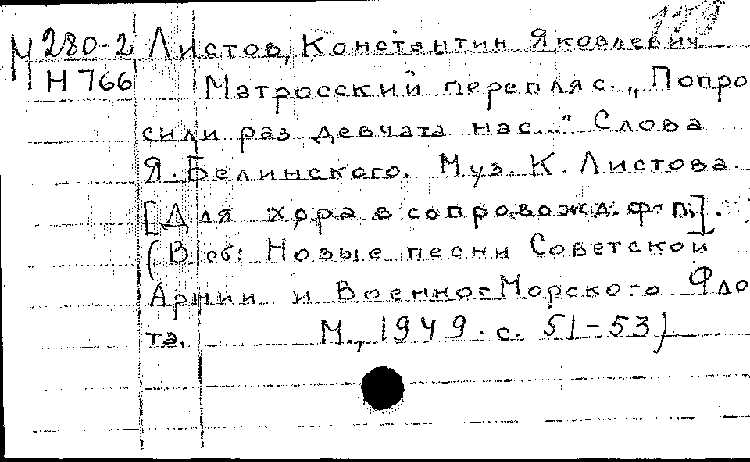 М 280-2 Листов, Константин Яковлевич
Н 766 Матросский перепляс. „Попро
сили раз девчата нас..." Слова
Я. Белинского. Муз. К. Листова.
[Для хора в сопровожд. ф-п.].
(В сб: Новые песни Советской
Армии и Военно-Морского Фло
та. М., 1949. с. 51-53)